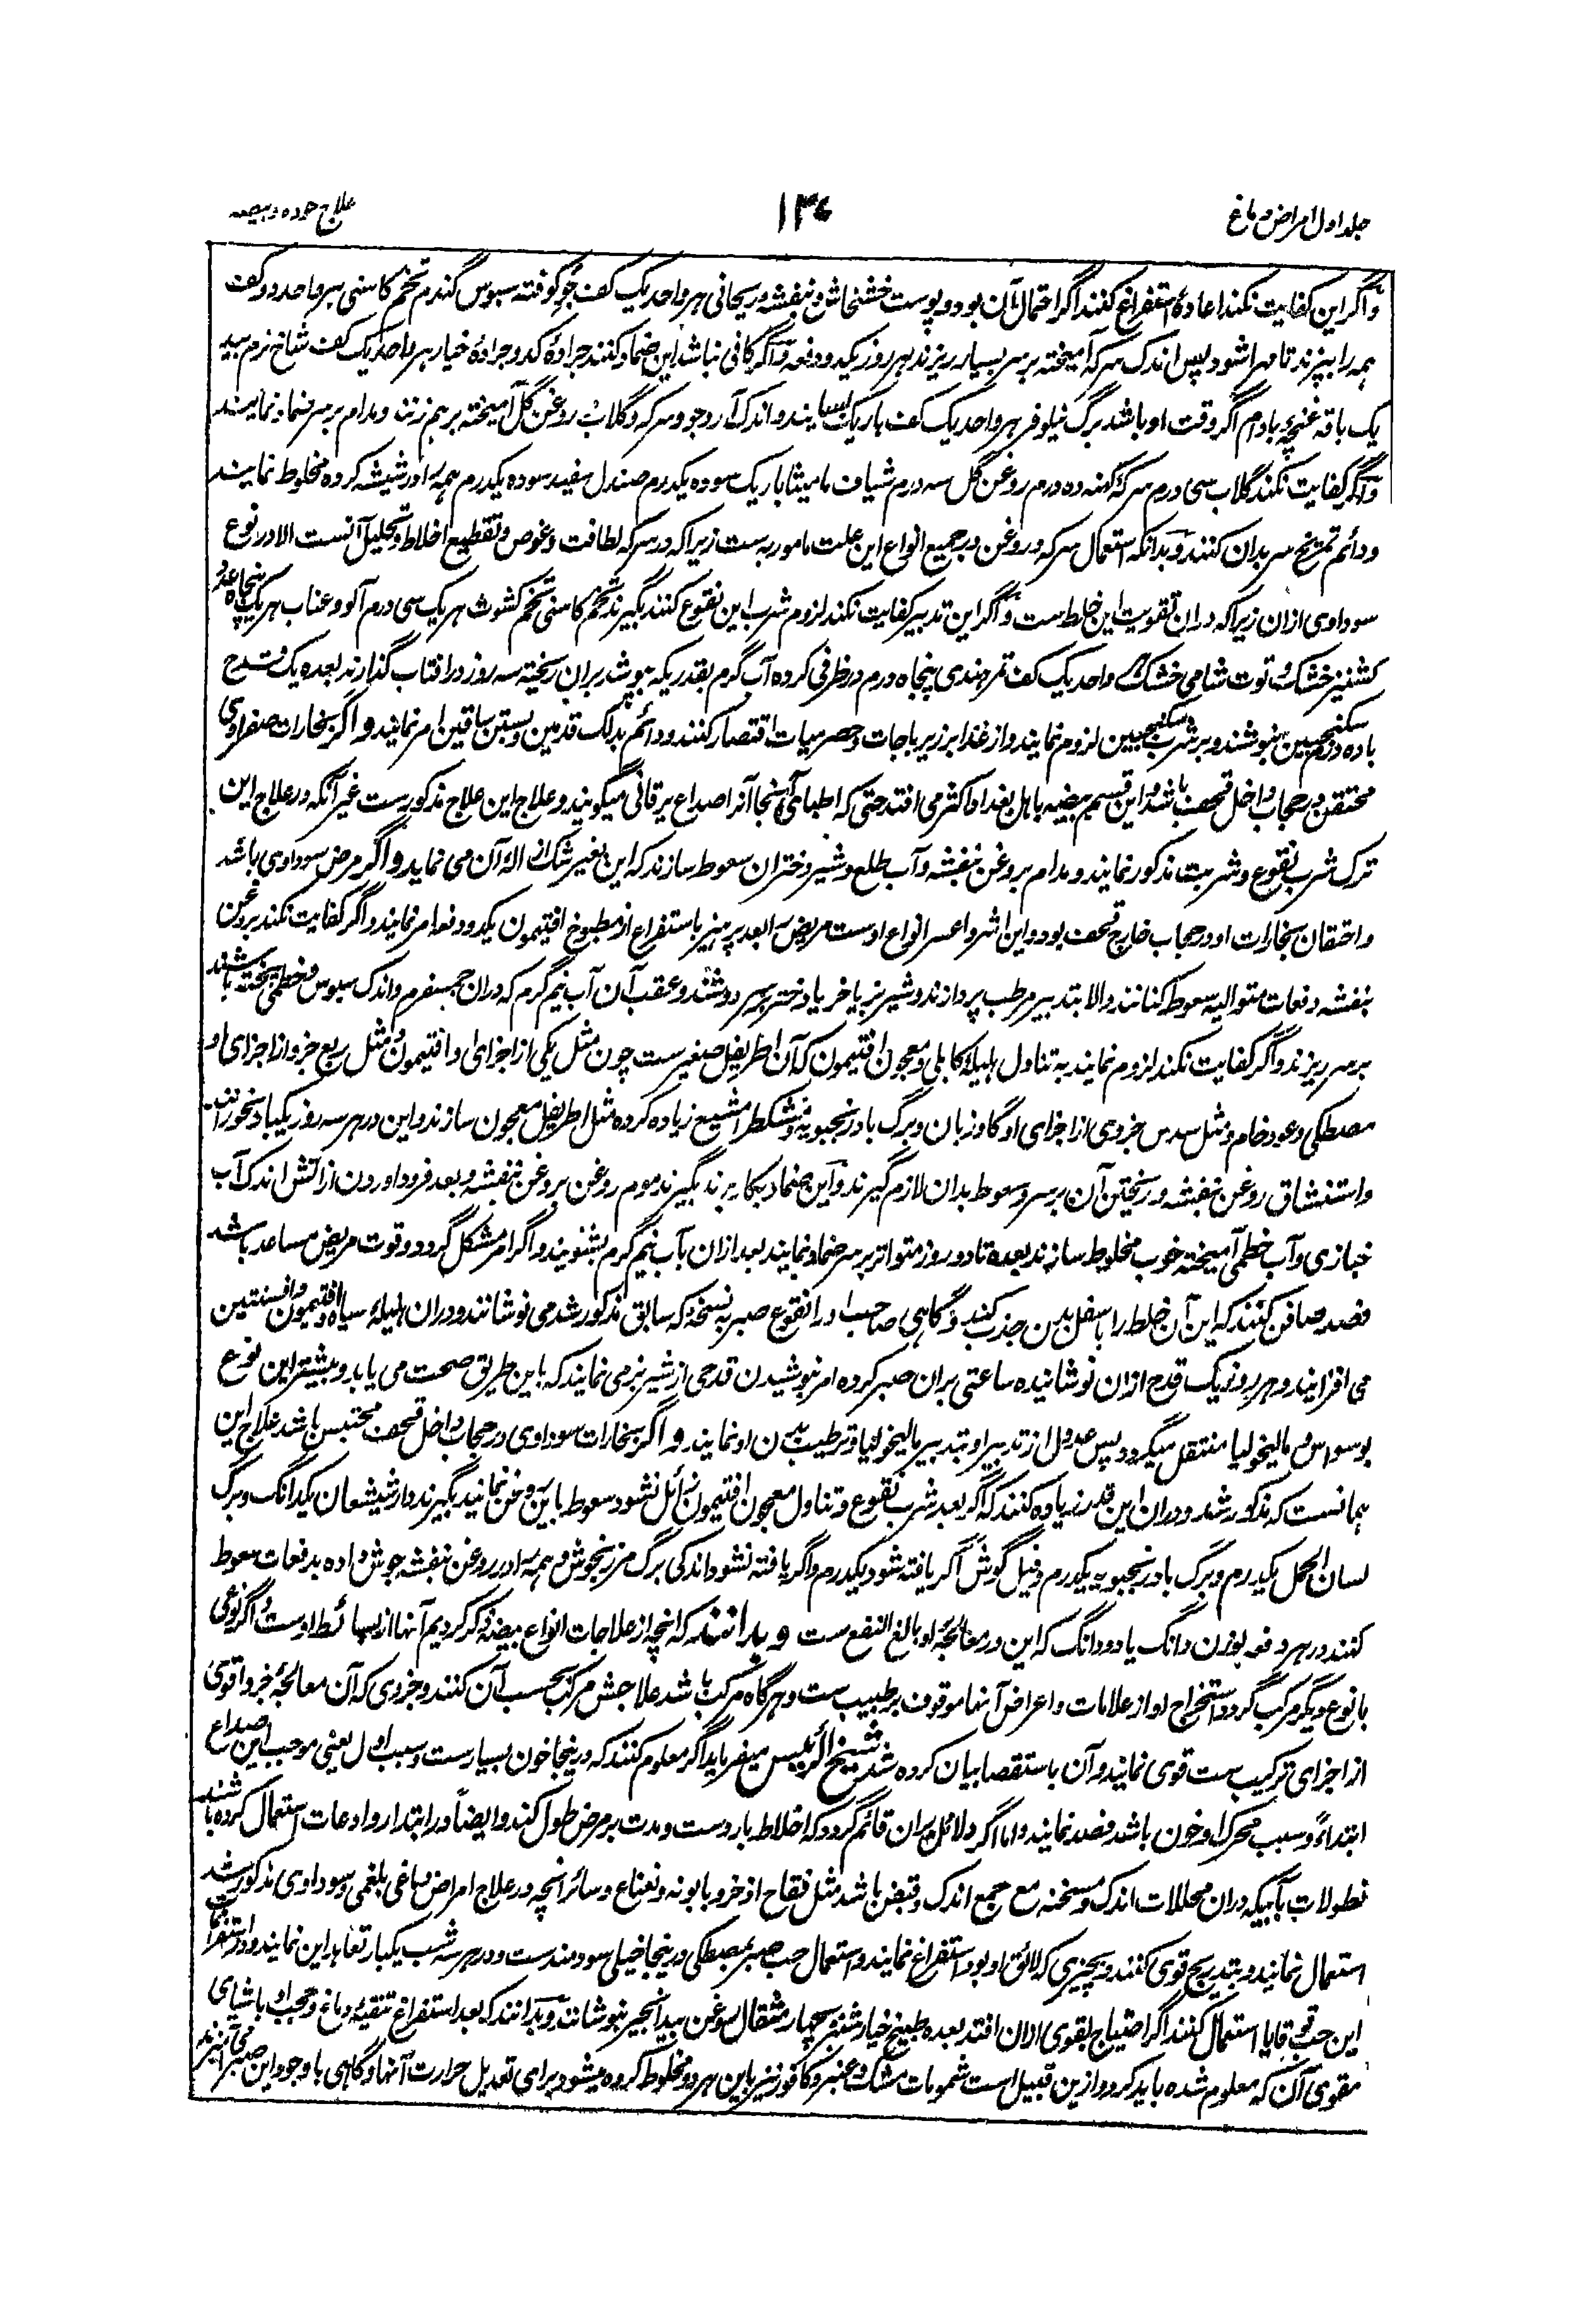 جلد اول امراض دماغ
۱۳۴
علاج خوده و بیضه
و اگر این کفایت نکند اعاده استفراغ کنند اگر احتمال آن بود و پوست خشخاش و بنفشه و ریحانی هر واحد یک کف جو کوفته سبوس گندم تخم کاسنی هر واحد دو کف
همه را بپزند تا مهرا شود پس اندک سرکه آمیخته بر سر بسیار ریزند هر روز یکدو دفعه و اگر کافی نباشد این ضماد کنند جرادهٔ کدو جرادهٔ خیار هر واحد یک کف شاخ نرم بید
یک باقه غنچه بادام اگر وقت او باشد برگ نیلوفر هر واحد یک کف باریک بسایند و اندک آرد جو و سرکه و گلاب و روغن گل آمیخته بر هم زنند و مدام بر سر ضماد نمایند
و اگر کفایت نکند گلاب سی درم سرکه کهنه ده درم روغن گل سه درم شیاف مامیثا باریک سوده یکدرم صندل سفید سوده یکدرم همه را در شیشه کرده مخلوط نمایند
و دائم تمریخ سر بدان کنند و بدانکه استعمال سرکه و روغن در جمیع انواع این علت مامور به ست زیرا که در سرکه لطافت و غوص و تقطیع اخلاط و تحلیل آنست الا در نوع
سوداوی ازان زیرا که دران تقویت این خلط ست و اگر این تدبیر کفایت نکند لزوم شرب این نقوع کنند بگیرند تخم کاسنی تخم کشوث هر یک سی درم آلو و عناب هر یک پنجاه عدد
کشنیز خشک و توت شامی خشک هر واحد یک کف تمر هندی پنجاه درم در ظرفی کرده آب گرم بقدریکه بپوشد بران ریخته سه روز در آفتاب گذارند بعده یک قدح
با ده درم سکنجبین بنوشند و بر شرب سکنجبین لزوم نمایند و از غذا بر زیرباجات و حصرمیات اقتصار کنند و دائم بدلک قدمین و بستن ساقین امر نمایند و اگر بخارات صفراوی
محتقن در حجاب داخل قحف باشد و این قسم بیضه باهل بغداد اکثر می افتد حتی که اطبای آنجا آنرا صداع یرقانی میگویند و علاج این علاج مذکور ست غیر آنکه در علاج این
ترک شرب نقوع و شربت مذکور نمایند و مدام بروغن بنفشه و آب طلع و شیر دختران سعوط سازند که این بغیر شک ازالهٔ آن می نماید و اگر مرض سوداوی باشد
و احتقان بخارات او در حجاب خارج قحف بود و این اشر و اعسر انواع اوست مریض را بعد پرهیز باستفراغ از مطبوخ افتیمون یکدو دفعه امر نمایند و اگر کفایت نکند بروغن
بنفشه دفعات متوالیه سعوط کنانند و الا بتدبیر مرطب پردازند و شیر بز یا خر یا دختر بر سر دوشند و عقب آن آب نیم گرم که دران جمسفرم و اندک سبوس و خطمی پخته باشند
بر سر ریزند و اگر کفایت نکند لزوم نمایند به تناول هلیله کابلی و معجون افتیمون که آن اطریفل صغیر ست چون مثل یکی از اجزای او افتیمون و مثل ربع جزو از اجزای او
مصطکی و عود خام و مثل سدس جزوی از اجزای او گاوزبان و برگ بادرنجبویه و مشکطرامشیع زیاده کرده مثل اطریفل معجون سازند و این در هر سه روز یکبار بخورانند
و استنشاق روغن بنفشه و ریختن آن بر سر و سعوط بدان لازم گیرند و این ضماد بکار برند بگیرند موم روغن بروغن بنفشه و بعد فرود اوردن از آتش اندک آب
خبازی و آب خطمی آمیخته خوب مخلوط سازند بعده تا دو روز متواتر بر سر ضماد نمایند بعد ازان بآب نیم گرم بشویند و اگر امر مشکل گردد و قوت مریض مساعد باشد
فصد صافن کنند که این آن خلط را باسفل بدن جذب کند و گاهی صاحب او را نقوع صبر به نسخهٔ که سابق مذکور شد می نوشانند و دران هلیله سیاه و افتیمون و افسنتین
می افزایند و هر روز یک قدح ازان نوشانیده ساعتی بران صبر کرده امر بنوشیدن قدحی از شیر بز می نمایند که باین طریق صحت می یابد و بیشتر این نوع
بوسواس و مالیخولیا منتقل میگردد پس عدول از تدبیر او بتدبیر مالیخولیا و ترطیب بدن او نمایند و اگر بخارات سوداوی در حجاب داخل قحف محتبس باشد علاج این
همانست که مذکور شد و دران این قدر زیاده کنند که اگر بعد شرب نقوع و تناول معجون افتیمون زائل نشود سعوط باین روغن نمایند بگیرند دارشیشعان یکدانگ و برگ
لسان الحمل یکدرم و برگ بادرنجبویه یکدرم و فیل گوش اگر یافته شود یکدرم و اگر یافته نشود اندکی برگ مرزنجوش و همه را در روغن بنفشه جوش داده بدفعات سعوط
کنند در هر دفعه بوزن دانگ یا دو دانگ که این در معالجه او بالغ النفع ست و بدانند که انچه از علاجات انواع بیضه ذکر کردیم آنها از بسائط اوست و اگر نوعی
با نوع دیگر مرکب گردد استخراج او از علامات و اعراض آنها موقوف بر طبیب ست و هرگاه مرکب باشد علاجش مرکب بحسب آن کنند و جزوی که آن معالجهٔ جزو اقوی
از اجزای ترکیب ست قوی نمایند و آن باستقصا بیان کرده شد شیخ الرئیس میفرماید اگر معلوم کنند که درینجا خون بسیارست و سبب اول یعنی موجب این صداع
ابتداءً و سبب محرک او خون باشد فصد نمایند و اما اگر دلائل بران قائم گردد که اخلاط باردست و مدت بر مرض طول کند و ایضاً در ابتدا رادعات استعمال کرده باشند
نطولات بآبیکه دران محللات اندک و مسخنه مع جمع اندک و قبض باشد مثل فقاح اذخر و بابونه و نعناع و سائر انچه در علاج امراض دماغی بلغمی و سوداوی مذکور شد
استعمال نمایند و بتدریج قوی کنند و بچیزی که لائق او بود استفراغ نمایند و استعمال حب صبر بمصطکی درینجا خیلی سودمندست و در هر سه شب یکبار تعاهد این نمایند و در استفراغات
این حب قوقایا استعمال کنند اگر احتیاج بقوی ازان افتد بعده طبیخ خیارشنبر بچهار مثقال روغن بیدانجیر بنوشانند و بدانند که بعد استفراغ تنقیهٔ دماغ و حجب او باشیای
مقوی آن که معلوم شده باید کرد و ازین قبیل است شمومات مشک و عنبر و کافور نیز باین هر دو مخلوط کرده میشود برای تعدیل حرارت آنها و گاهی با وجود این صبر می آمیزند